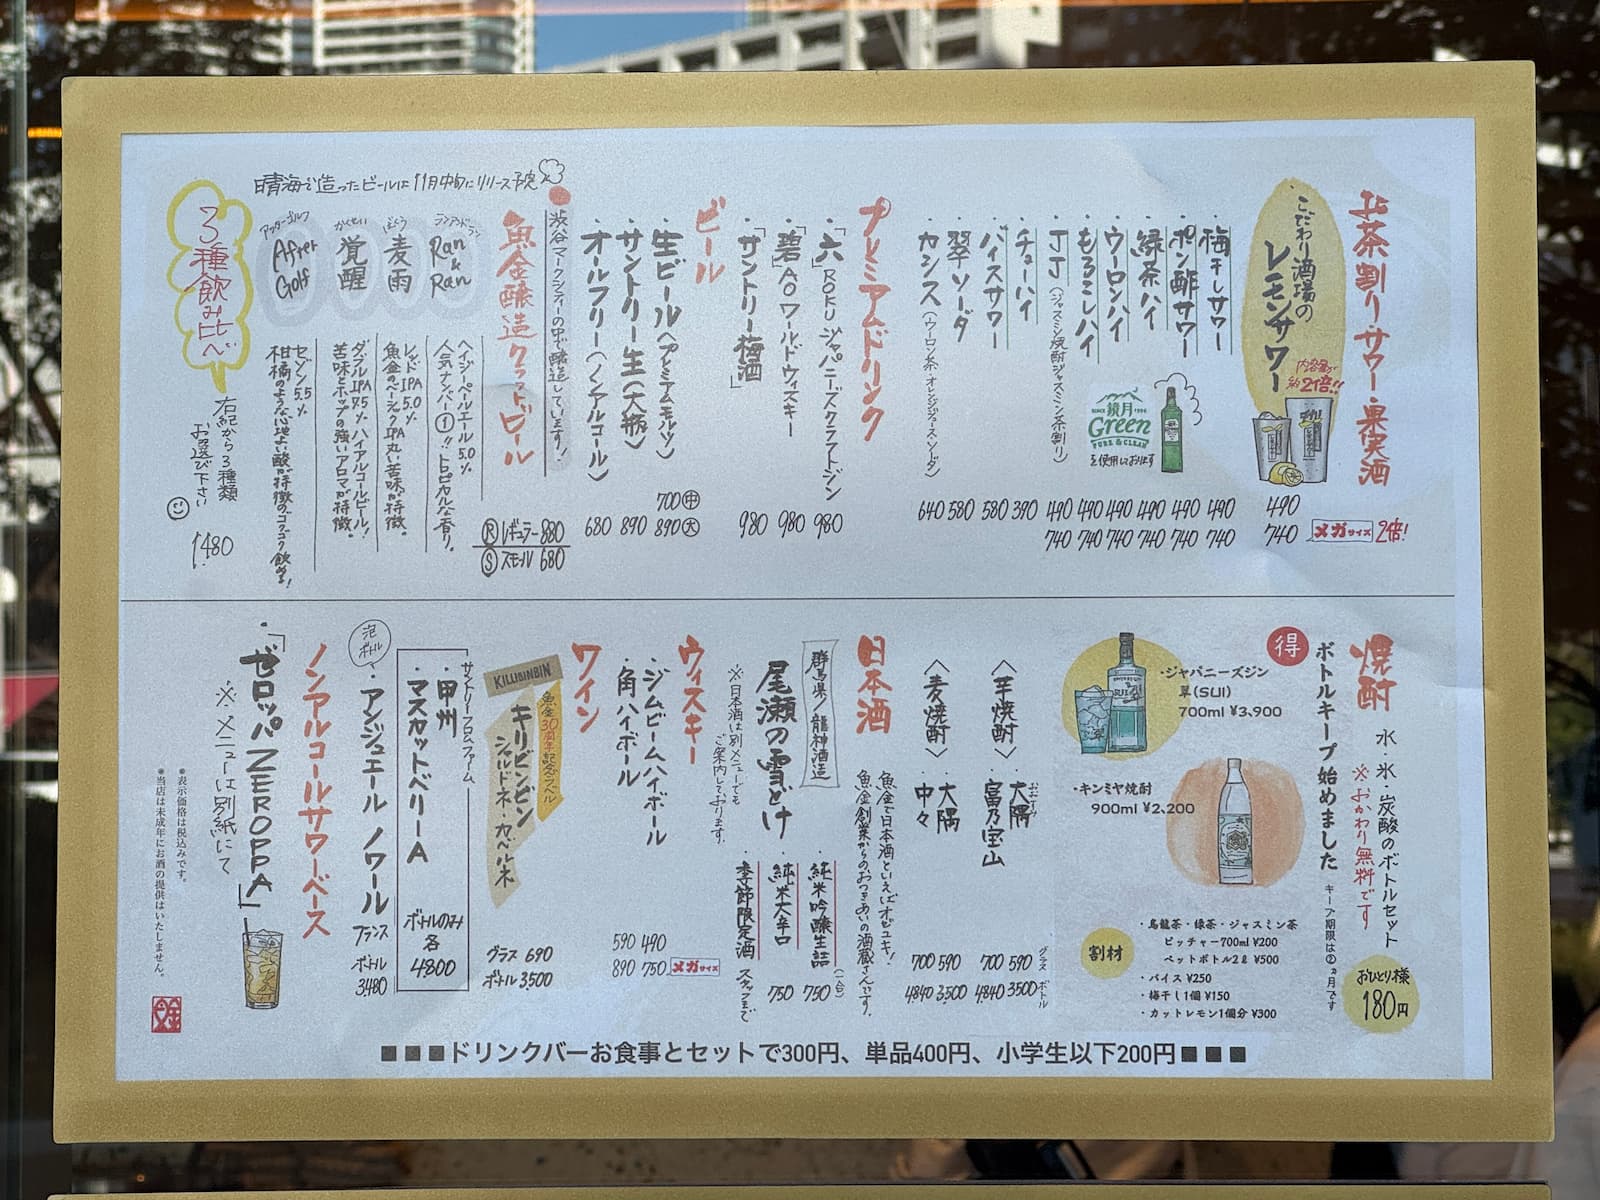 お茶割り・サワー・果実酒
こだわり酒場の
レモンサワー
内容量が
約2倍!!
490
740
メガサイズ
2倍!
・梅干しサワー
490
740
・ポン酢サワー
490
740
・緑茶ハイ
490
740
・ウーロンハイ
490
740
・もろこしハイ
490
740
・JJ(ジャスミン焼酎ジャスミン茶割り)
490
740
・チューハイ
390
・バイスサワー
580
・翠ソーダ
580
・カシス(ウーロン茶・オレンジジュース・ソーダ)
640
SINCE 鏡月 1996
Green
PURE & CLEAN
を使用しております
プレミアムドリンク
・「六」ROKU ジャパニーズクラフトジン
980
・「碧」AO ワールドウィスキー
980
・「サントリー梅酒」
980
ビール
・生ビール(プレミアムモルツ)
700 中
890 大
・サントリー生(大瓶)
890
・オールフリー(ノンアルコール)
680
渋谷マークシティーの中で醸造しています!
魚金醸造クラフトビール
R レギュラー 880
S スモール 680
晴海で造ったビールは11月中旬にリリース予定
ランアンドラン
Ran & Ran
ヘイジーペールエール 5.0%
人気ナンバー1!!トロピカルな香り。
ばくう
麦雨
レッドIPA 5.0%
魚金のベーシックIPA 丸い苦味が特徴。
かくせい
覚醒
ダブルIPA 7.5% ハイアルコールビール!
苦味とホップの強いアロマが特徴。
アフターゴルフ
After Golf
セゾン 5.5%
柑橘のような心地よい酸が特徴のゴクゴク飲める!
3種飲み比べ
右記から3種類
お選び下さい
1480
焼酎
水・氷・炭酸のボトルセット
※おかわり無料です
おひとり様
180円
得
ボトルキープ始めました
キープ期限は2ヵ月です
・ジャパニーズジン
翠(SUI)
700ml ¥3,900
・キンミヤ焼酎
900ml ¥2,200
割材
・烏龍茶・緑茶・ジャスミン茶
ピッチャー700ml ¥200
ペットボトル2ℓ ¥500
・バイス ¥250
・梅干し1個 ¥150
・カットレモン1個分 ¥300
グラス
ボトル
〈芋焼酎〉
おおすみ
・大隅
590
3500
・富乃宝山
700
4840
〈麦焼酎〉
・大隅
590
3500
・中々
700
4840
日本酒
魚金で日本酒といえばオゼユキ!
魚金創業からのおつきあいの酒蔵さんです。
群馬県/龍神酒造
尾瀬の雪どけ
※日本酒は別メニューでも
ご案内しております。
・純米吟醸生詰
(一合)
750
・純米大辛口
750
・季節限定酒
スタッフまで
ウィスキー
・ジムビームハイボール
490
750
メガサイズ
・角ハイボール
590
890
ワイン
KILLIBINBIN
魚金30周年記念ラベル
キリビンビン
シャルドネ・カベルネ
グラス 690
ボトル 3,500
サントリーフロムファーム
・甲州
・マスカットベリーA
ボトルのみ
各
4800
泡
ボトル
・アンジュエール ノワール
フランス
ボトル
3,480
ノンアルコールサワーベース
・「ゼロッパ ZEROPPA」
※メニューは別紙にて
※表示価格は税込みです。
※当店は未成年にお酒の提供はいたしません。
■■■ドリンクバーお食事とセットで300円、単品400円、小学生以下200円■■■